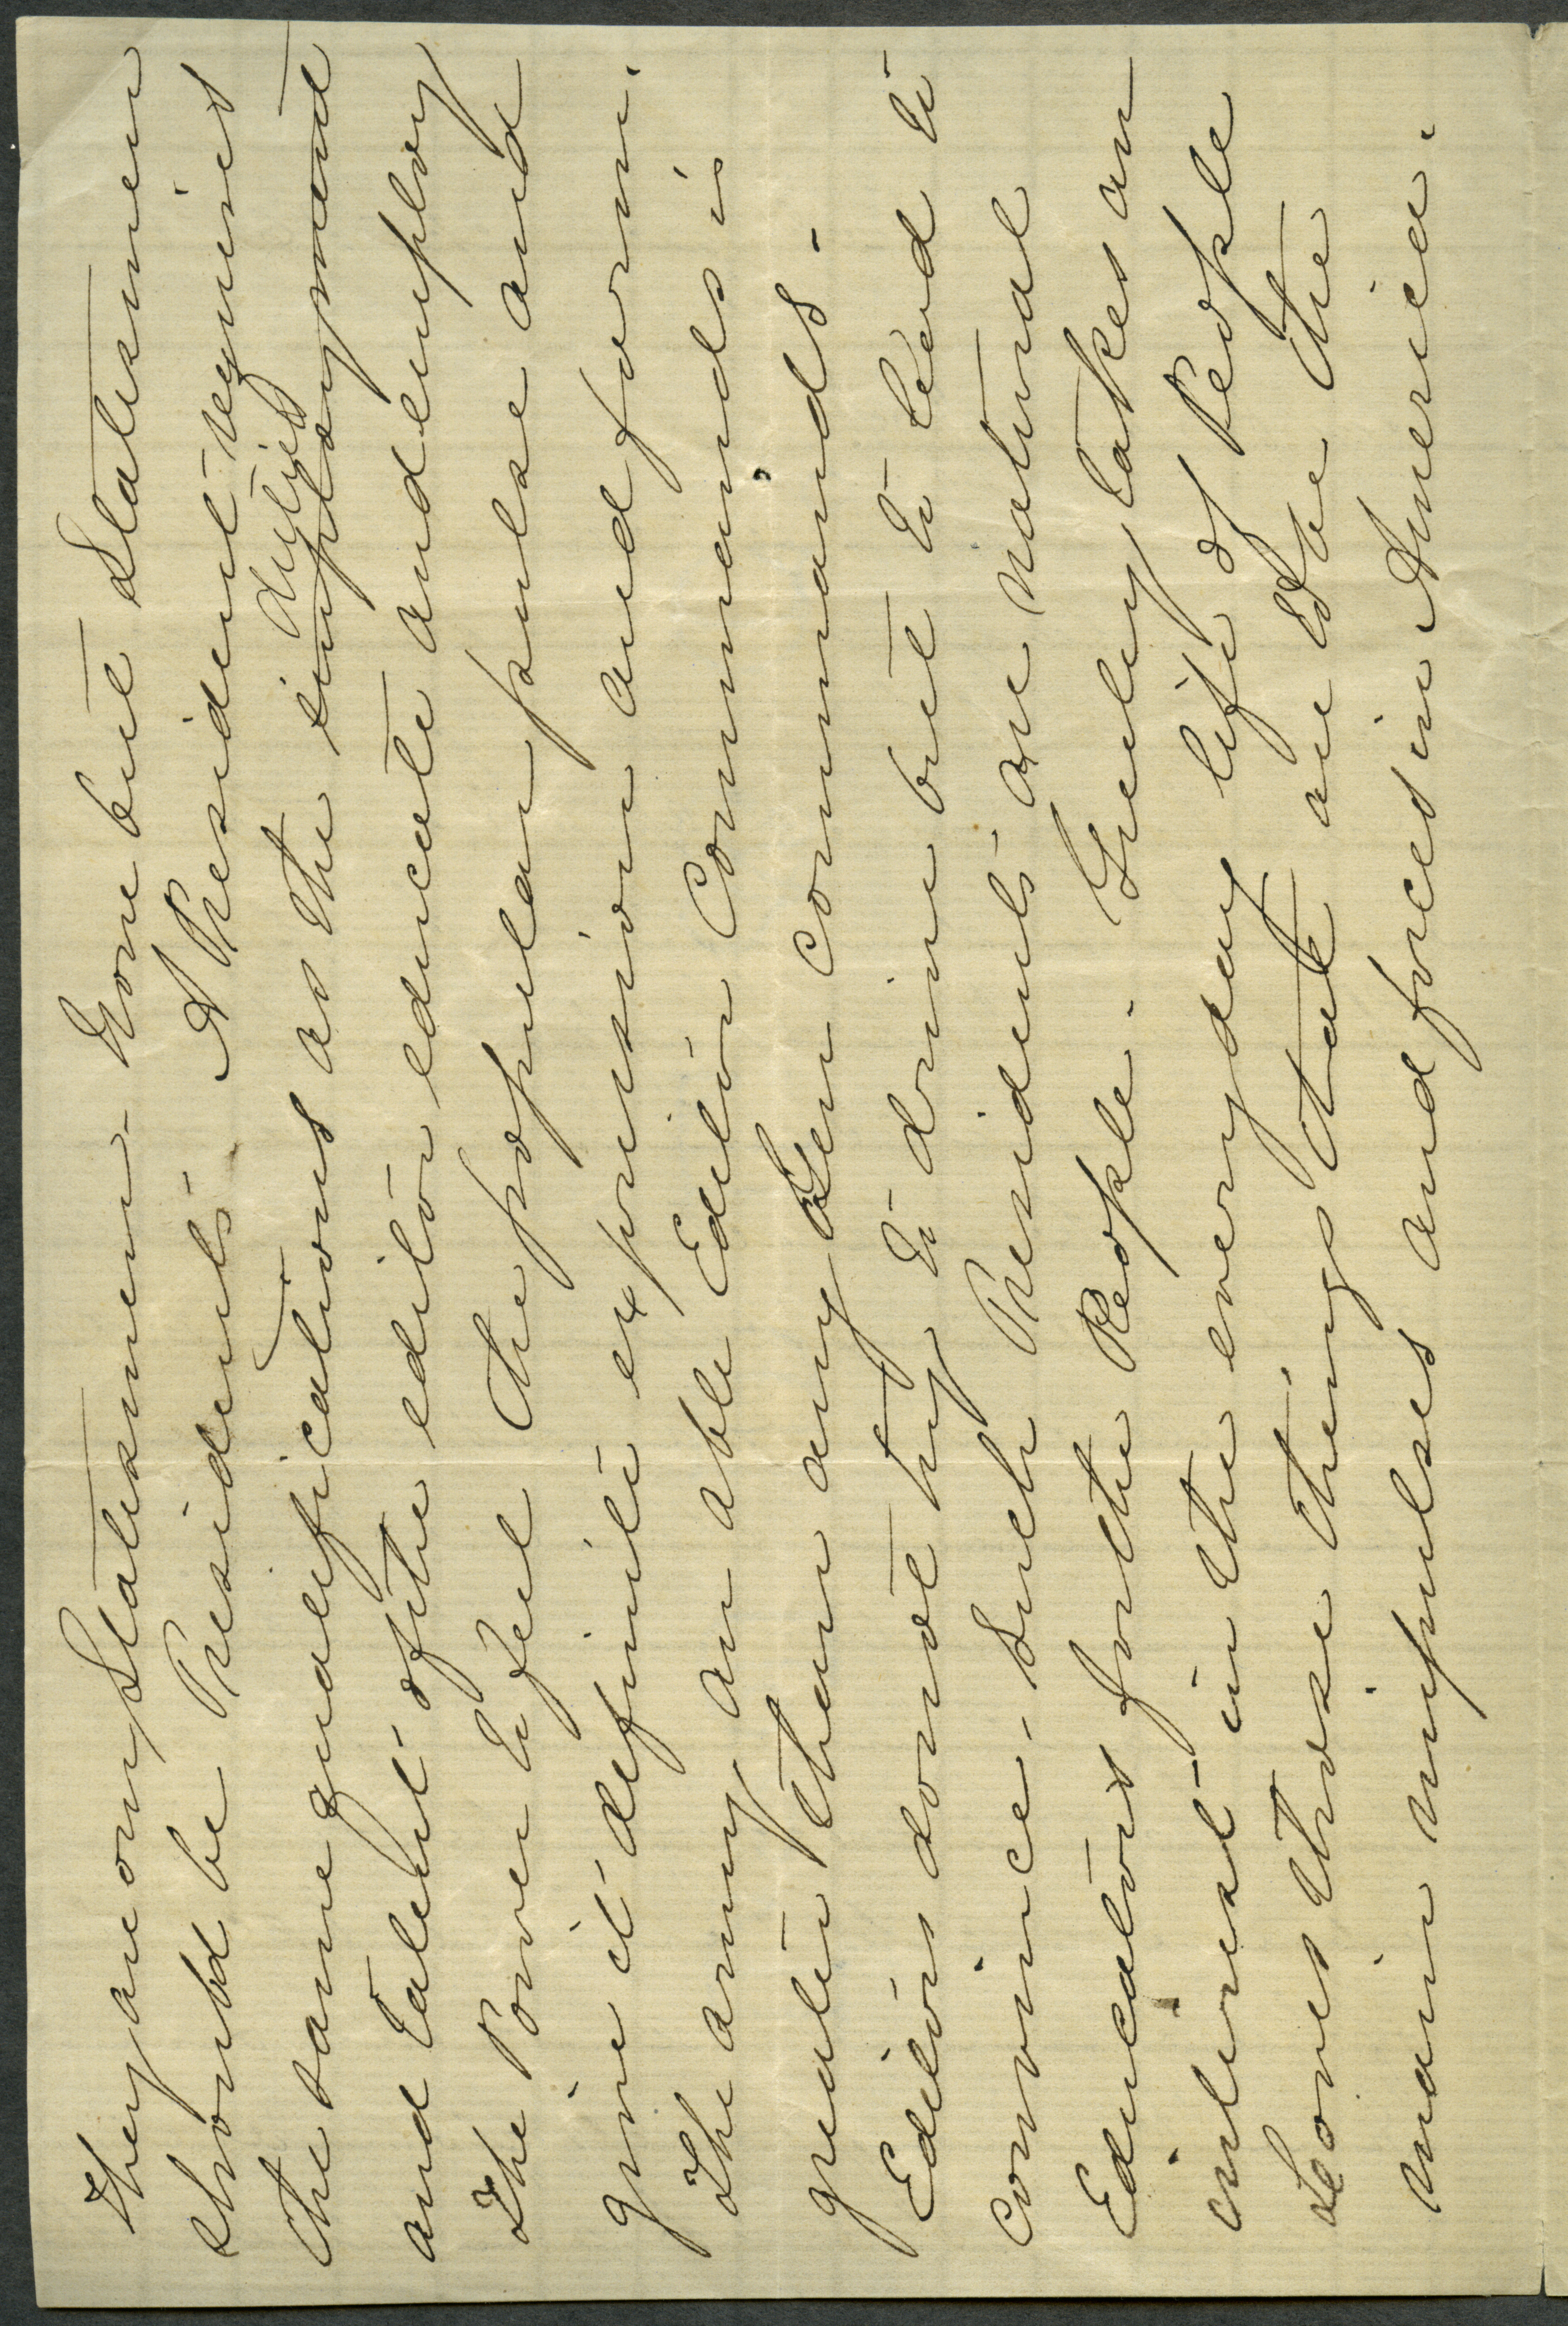 they are only Statesmen. None but Statesmen
should be Presidents. A President requires
the same qualifications as the employment duties
and talent of the editor educate and employ
The Power to feel the popular pulse and
give it definite expression and form.
The army an able Editor Commands is
greater than any Gen commands.
Editors do not try to drive but to lead to
convince. Such Presidents are natural
Educators for the People. Greeley takes an
interest in the everyday life of People
Loves those things that are the
main impulses and forces in America.